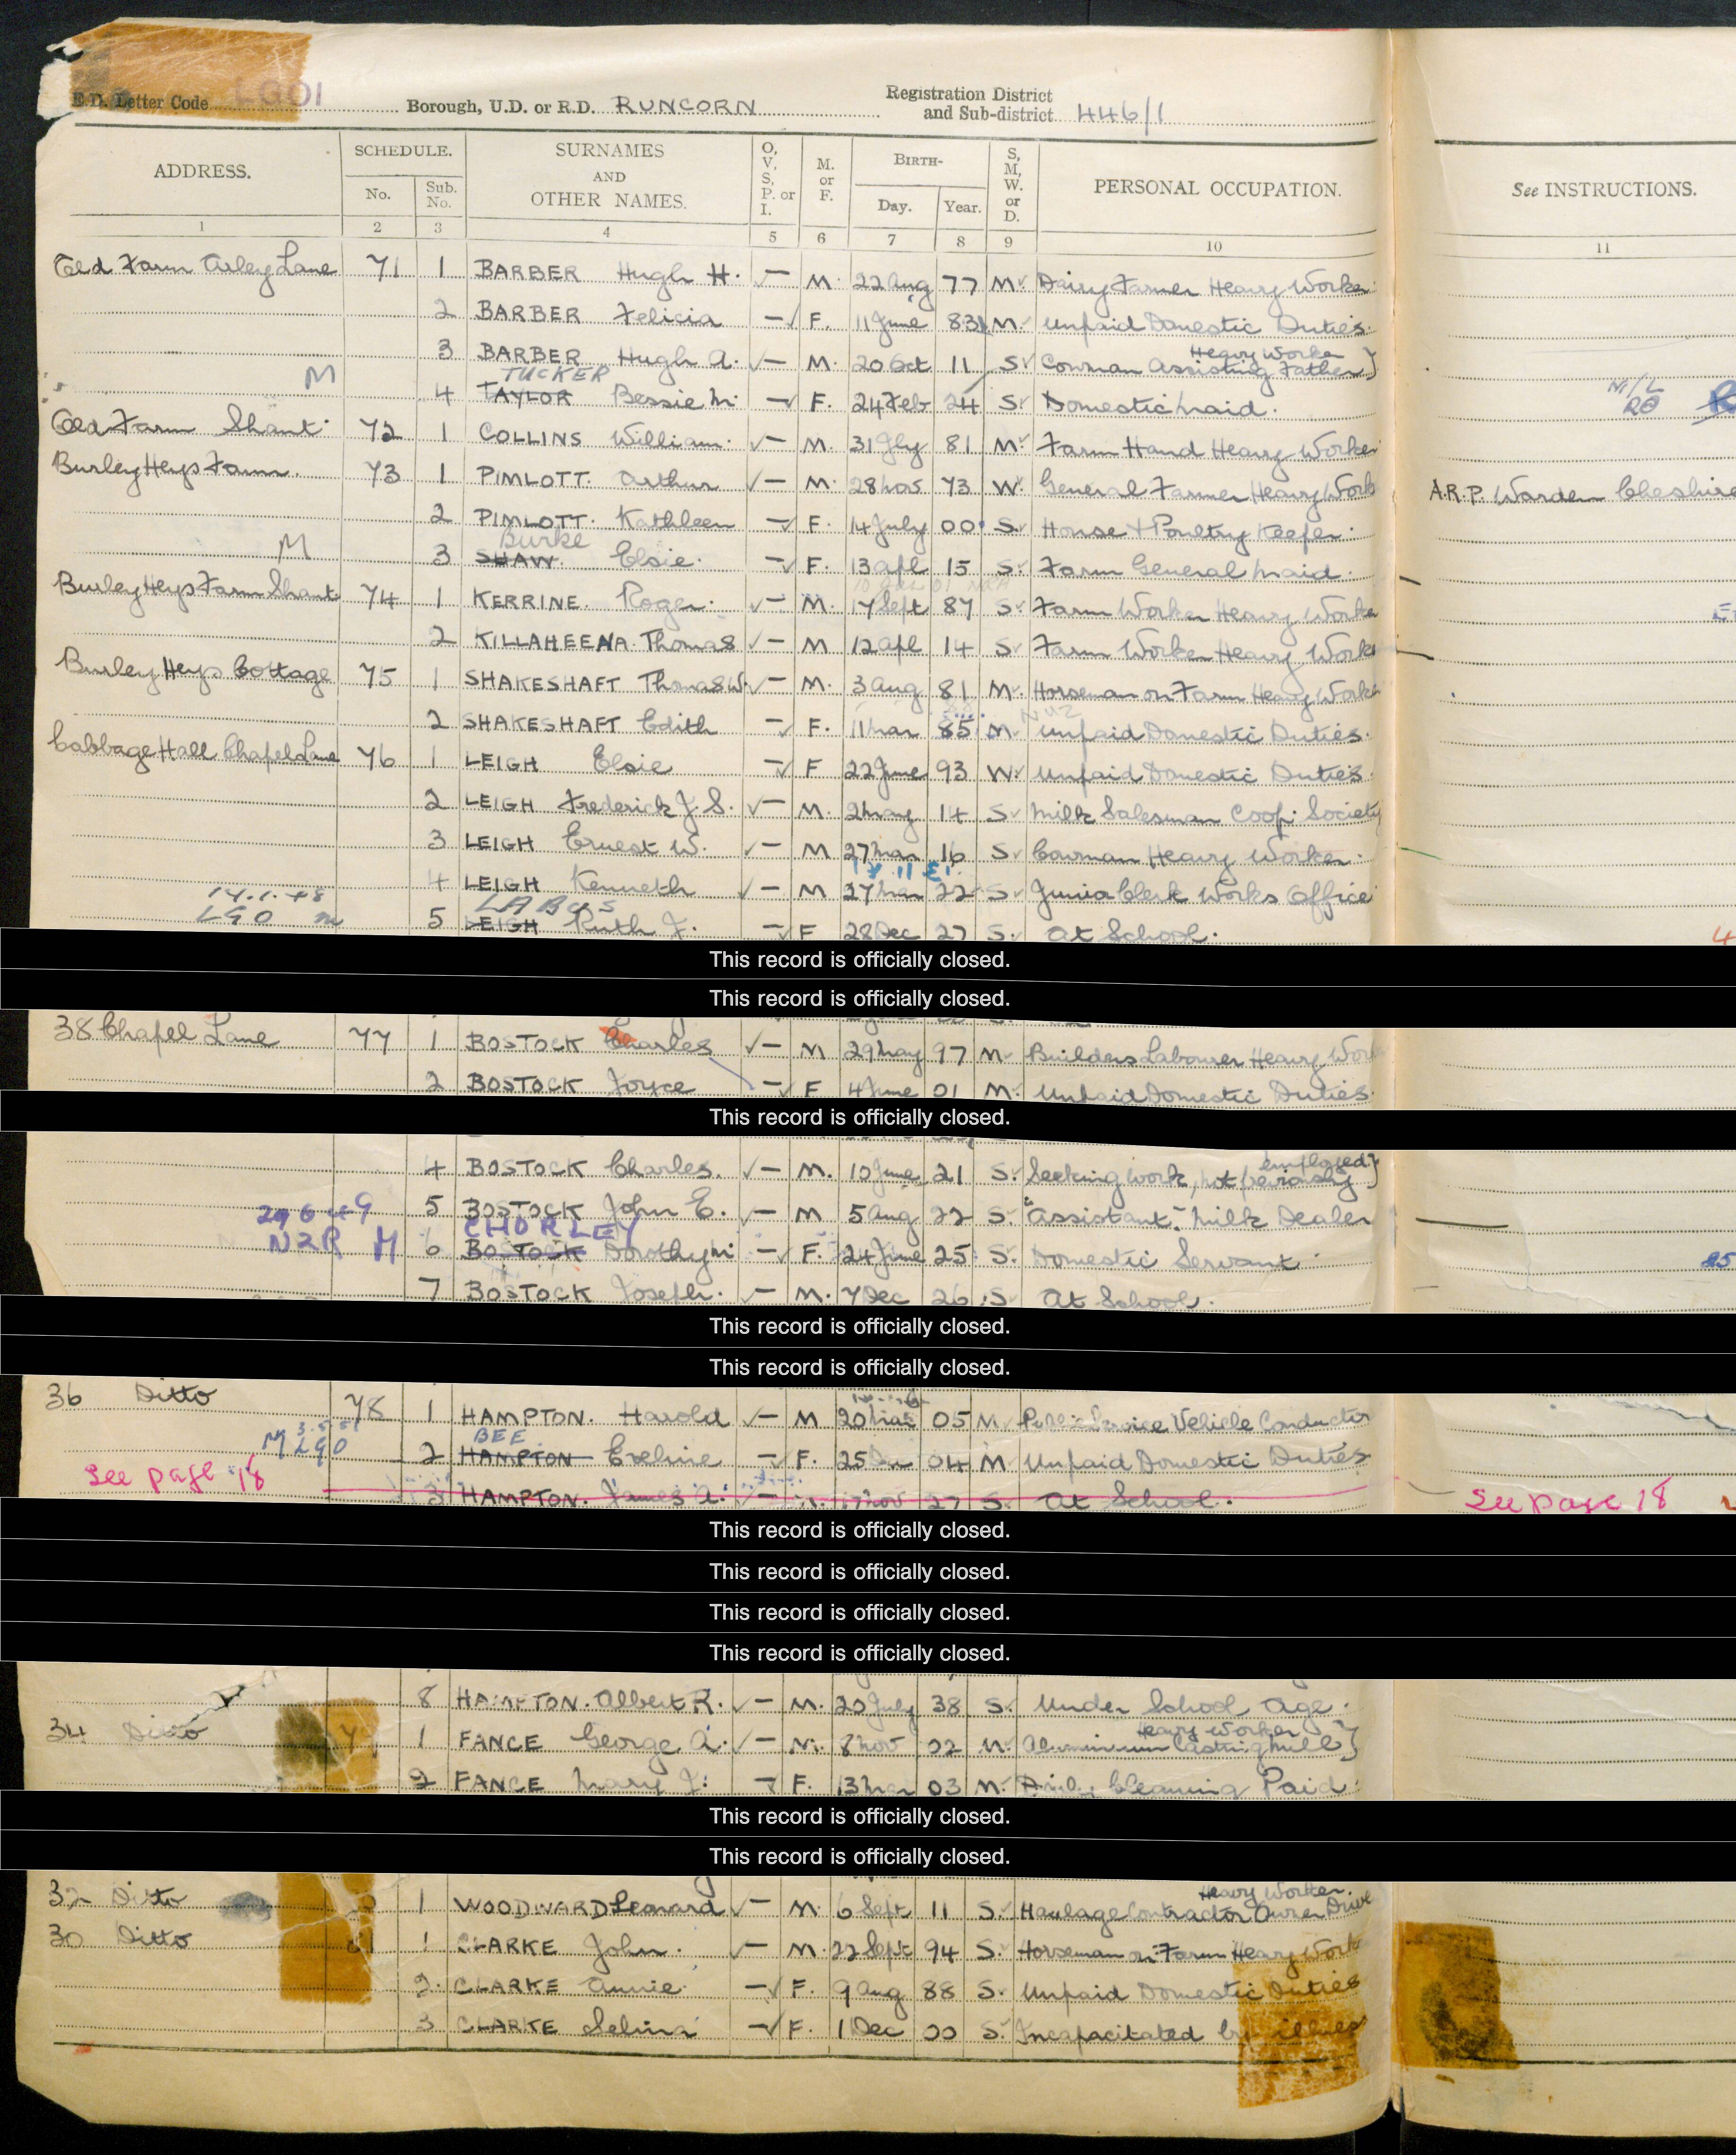 E.D. Letter Code LGO1 Borough, U.D. or R.D. RUNCORN Registration District and Sub-district 446/1
ADDRESS. SCHEDULE. No. Sub. No. SURNAMES AND OTHER NAMES. O, V, S, P. or I. M. or F. BIRTH- Day. Year. S, M, W. or D. PERSONAL OCCUPATION. See INSTRUCTIONS.
1 2 3 4 5 6 7 8 9 10 11
Old Farm Arley Lane 71 1 BARBER Hugh H. — M. 22 Aug 77 M Dairy Farmer Heavy Worker
2 BARBER Felicia — F. 11 June 83 M. Unpaid Domestic Duties.
3 BARBER Hugh A. — M. 20 Oct 11 S Cowman Assisting Father } Heavy Worker
M TUCKER
4 TAYLOR Bessie M. — F. 24 Feb 24 S. Domestic Maid.
Old Farm Shant 72 1 COLLINS William. — M. 31 Jly 81 M. Farm Hand Heavy Worker
Burley Heys Farm. 73 1 PIMLOTT. Arthur — M. 28 Nov 73 W. General Farmer Heavy Work A.R.P. Warden Cheshire
2 PIMLOTT. Kathleen — F. 14 July 00 S. House & Poultry Keeper.
M Burke
3 SHAW. Elsie. — F. 13 Apl 15 S. Farm General Maid.
Burley Heys Farm Shant 74 1 KERRINE. Roger. — M. 17 Sept 87 S. Farm Worker Heavy Worke
2 KILLAHEENA. Thomas — M 12 Apl 14 S. Farm Worker Heavy Work
Burley Heys Cottage 75 1 SHAKESHAFT Thomas W. — M. 3 Aug 81 M. Horseman on Farm Heavy Work
2 SHAKESHAFT Edith — F. 11 Mar 85 M. Unpaid Domestic Duties.
Cabbage Hall Chapel Lane 76 1 LEIGH Elsie — F 22 June 93 W. Unpaid Domestic Duties.
2 LEIGH Frederick J. S. — M. 2 May 14 S. Milk Salesman Coop. Society
3 LEIGH Ernest W. — M 27 Mar 16 S. Cowman Heavy Worker.
4 LEIGH Kenneth — M 27 Mar 22 S. Junior Clerk Works Office
14.1.48
LGO M
5 LEIGH Ruth J. — F 28 Dec 27 S. At School.
This record is officially closed.
This record is officially closed.
38 Chapel Lane 77 1 BOSTOCK Charles — M 29 May 97 M. Builders Labourer Heavy Work
2 BOSTOCK Joyce — F 4 June 01 M. Unpaid Domestic Duties.
This record is officially closed.
4 BOSTOCK Charles. — M. 10 June 21 S. Seeking work, not previously employed }
5 BOSTOCK John E. — M 5 Aug 22 S. "Assistant" Milk Dealer
29 6 49 CHORLEY
N2R M 6 BOSTOCK Dorothy M. — F. 24 June 25 S. Domestic Servant
7 BOSTOCK Joseph. — M. 7 Dec 26 S At School.
This record is officially closed.
This record is officially closed.
36 Ditto 78 1 HAMPTON. Harold — M 20 Mar 05 M Public Service Vehicle Conductor
BEE
M LGO 2 HAMPTON Eveline — F. 25 04 M Unpaid Domestic Duties
See page 18 3 HAMPTON. James A. — 17 Nov 27 S. At School. See page 18
This record is officially closed.
This record is officially closed.
This record is officially closed.
This record is officially closed.
8 HAMPTON. Albert R. — M. 20 July 38 S. Under School Age.
34 Ditto 1 FANCE George A. — M. 8 Nov 02 M. Aluminium Casting Mill } Heavy Worker
2 FANCE Mary J. — F. 13 Mar 03 M. Daily Cleaning Paid.
This record is officially closed.
This record is officially closed.
32 Ditto 1 WOODWARD Leonard — M. 6 Sept 11 S. Haulage Contractor Owner Driver Heavy Worker.
30 Ditto 1 CLARKE John. — M. 22 Sept 94 S. Horseman on Farm Heavy Work
2. CLARKE Annie. — F. 9 Aug 88 S. Unpaid Domestic Duties
3 CLARKE Selina — F. 1 Dec 00 S. Incapacitated by illness